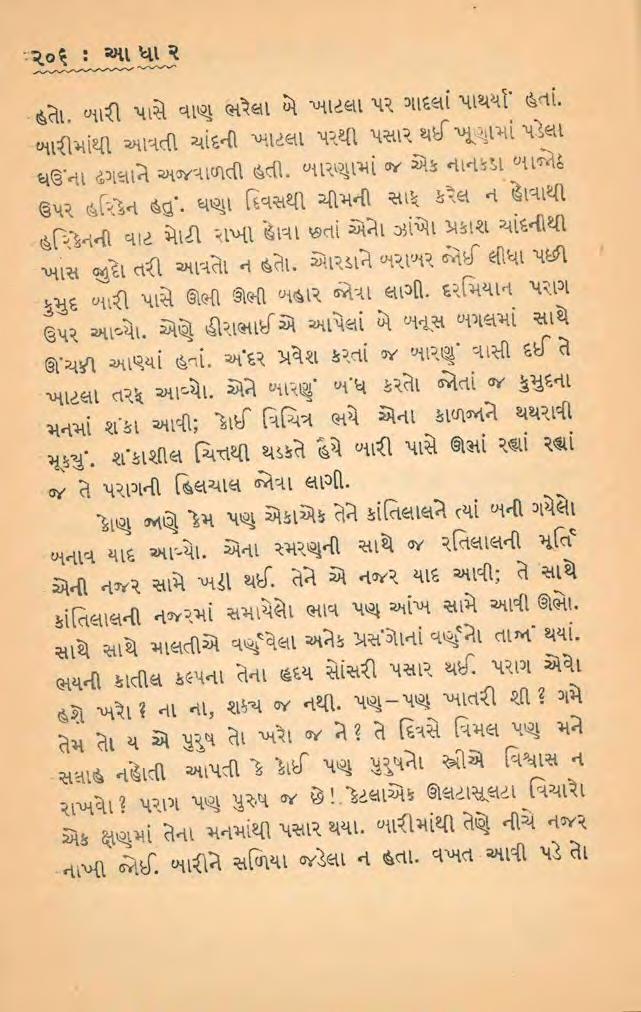 ૨૦૬ : આ ધા ર
હતો. બારી પાસે વાણ ભરેલા બે ખાટલા પર ગાદલાં પાથર્યાં હતાં.
બારીમાંથી આવતી ચાંદની ખાટલા પરથી પસાર થઈ ખૂણામાં પડેલા
ઘઉંના ઢગલાને અજવાળતી હતી. બારણામાં જ એક નાનકડા બાજોઠ
ઉપર હરિકેન હતું. ઘણા દિવસથી ચીમની સાફ કરેલ ન હોવાથી
હરિકેનની વાટ મોટી રાખી હોવા છતાં એનો ઝાંખો પ્રકાશ ચાંદનીથી
ખાસ જુદો તરી આવતો ન હતો. ઓરડાને બરાબર જોઈ લીધા પછી
કુમુદ બારી પાસે ઊભી ઊભી બહાર જોવા લાગી. દરમિયાન પરાગ
ઉપર આવ્યો. એણે હીરાભાઈએ આપેલાં બે બનૂસ બગલમાં સાથે
ઊંચકી આણ્યાં હતાં. અંદર પ્રવેશ કરતાં જ બારણું વાસી દઈ તે
ખાટલા તરફ આવ્યો. એને બારણું બંધ કરતો જોતાં જ કુમુદના
મનમાં શંકા આવી; કોઈ વિચિત્ર ભયે એના કાળજાને થથરાવી
મૂક્યું. શંકાશીલ ચિત્તથી થડકતે હૈયે બારી પાસે ઊભાં રહ્યાં રહ્યાં
જ તે પરાગની હિલચાલ જોવા લાગી.
કોણ જાણે કેમ પણ એકાએક તેને કાંતિલાલને ત્યાં બની ગયેલો
બનાવ યાદ આવ્યો. એના સ્મરણની સાથે જ રતિલાલની મૂર્તિ
એની નજર સામે ખડી થઈ. તેને એ નજર યાદ આવી; તે સાથે
કાંતિલાલની નજરમાં સમાયેલો ભાવ પણ આંખ સામે આવી ઊભો.
સાથે સાથે માલતીએ વર્ણવેલા અનેક પ્રસંગોનાં વર્ણનો તાજાં થયાં.
ભયની કાતીલ કલ્પના તેના હૃદય સોંસરી પસાર થઈ. પરાગ એવો
હશે ખરો ? ના ના, શક્ય જ નથી. પણ – પણ ખાતરી શી ? ગમે
તેમ તો ય એ પુરુષ તો ખરો જ ને ? તે દિવસે વિમલ પણ મને
સલાહ નહોતી આપતી કે કોઈ પણ પુરુષનો સ્ત્રીએ વિશ્વાસ ન
રાખવો ? પરાગ પણ પુરુષ જ છે !. કેટલાએક ઊલટાસૂલટા વિચારો
એક ક્ષણમાં તેના મનમાંથી પસાર થયા. બારીમાંથી તેણે નીચે નજર
નાખી જોઈ. બારીને સળિયા જડેલા ન હતા. વખત આવી પડે તો